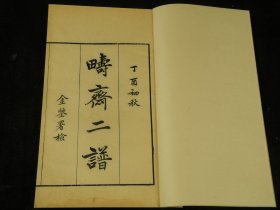 丁酉初秋
疇齋二譜
金鑒署檢